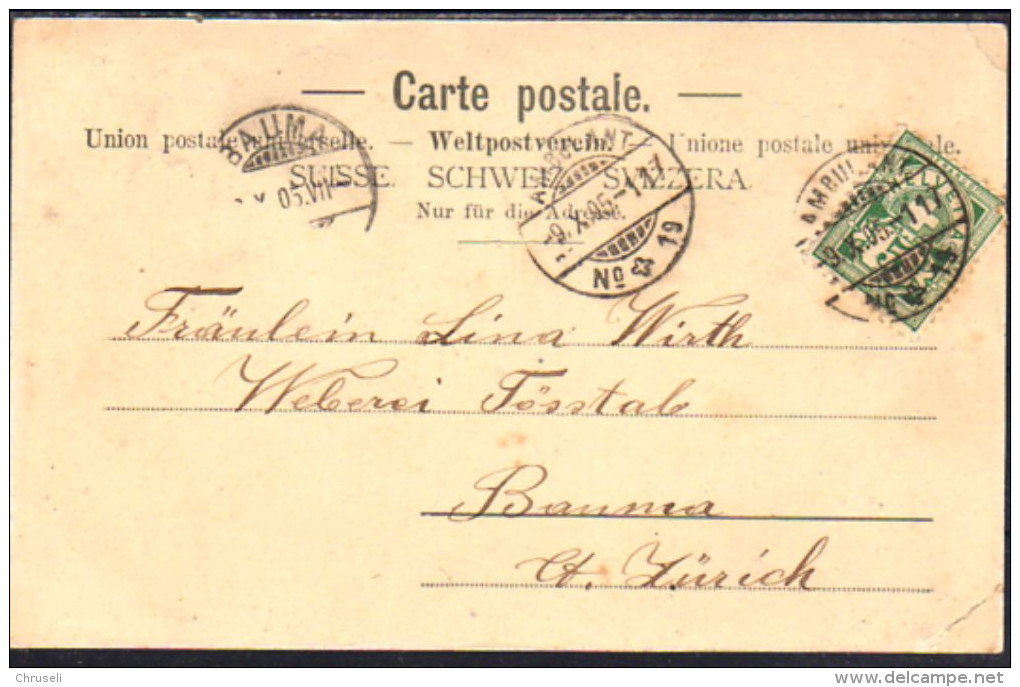 Carte postale.
Union postale universelle. — Weltpostverein. — Unione postale universale.
SUISSE. SCHWEIZ. SVIZZERA.
Nur für die Adresse.
AMBULANT
9. X. 05. - 117
No 19
BAUMA
X 05. VII
AMBULANT
9. X. 05. - 117
No 19
HELVETIA
Fräulein Lina Wirth
Weberei Tösstal
Bauma
Ct. Zürich
Chruseli
delcampe.net